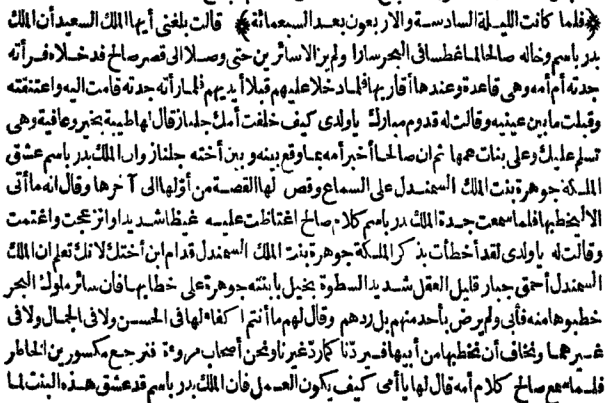 ﴿فلما كانت الليلة السادسة والاربعون بعد السبعمائة﴾ قالت بلغنى أيها الملك السعيد أن الملك
بدر باسم وخاله صالحا لما غطسا فى البحر سارا ولم يزالا سائرين حتى وصلا الى قصر صالح فدخلاه فرأته
جدته أم أمه وهى قاعدة وعندها أقاربها فلما دخلا عليهم قبلا أيديهم فلما رأته جدته قامت اليه واعتنقته
وقبلت ما بين عينيه وقالت له قدوم مبارك يا ولدى كيف خلفت أمك جلناز قال لها طيبة بخير وعافية وهى
تسلم عليك وعلى بنات عمها ثم ان صالحا أخبر أمه بما وقع بينه وبين أخته جلناز وان الملك بدر باسم عشق
الملكة جوهرة بنت الملك السمندل على السماع وقص لها القصة من أولها الى آخرها وقال انه ما أتى
الا ليخطبها فلما سمعت جدة الملك بدر باسم كلام صالح اغتاظت عليه غيظا شديدا وانزعجت واغتمت
وقالت له يا ولدى لقد أخطأت بذكر الملكة جوهرة بنت الملك السمندل قدام ابن أختك لانك تعلم ان الملك
السمندل أحمق جبار قليل العقل شديد السطوة بخيل بابنته جوهرة على خطابها فان سائر ملوك البحر
خطبوها منه فأبى ولم يرض بأحد منهم بل ردهم وقال لهم ما أنتم اكفاء لها فى الحسن ولا فى الجمال ولا فى
غيرهما ونخاف أن نخطبها من أبيها فيردنا كما رد غيرنا ونحن أصحاب مروءة فنرجع مكسورين الخاطر
فلما سمع صالح كلام أمه قال لها يا أمى كيف يكون العمل فان الملك بدر باسم قد عشق هذه البنت لما